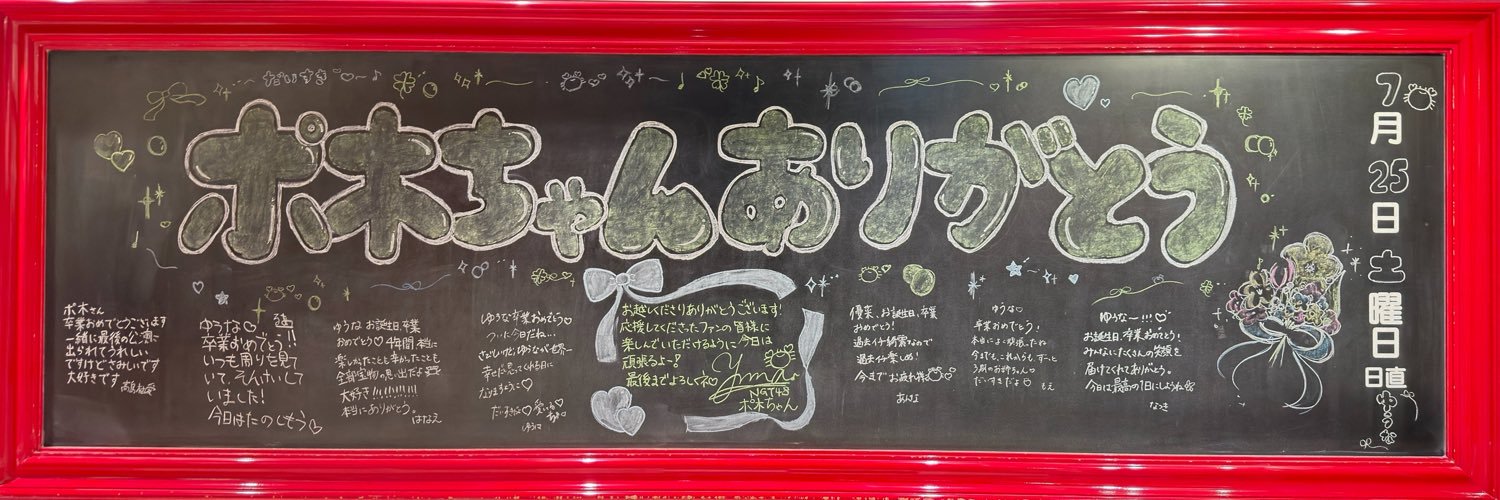 だいすき
ポ木ちゃんありがとう
7月25日土曜日
日直
ポ木さん
卒業おめでとうございます
一緒に最後の公演に
出られてうれしい
ですけどさみしいです
大好きです
ゆうな♡
卒業おめでとう!!
いつも周りを見て
いて、えんけいして
いました!
今日はたのしもう
ゆうな お誕生日、卒業
おめでとう♡ 4年間 本当に
楽しかったことも辛かったことも
全部宝物の思い出だよ
大好き!!!!!!!!!
本当にありがとう。
はなえ
ゆうな 卒業おめでとう♡
ついに今日だね…
さびしいけど、ゆうなが世界一
幸せだ思ってくれる日に
なりますように♡
だいすきだよ♡
お越しくださりありがとうございます!
応援してくださったファンの皆様に
楽しんでいただけるように今日は
頑張るよー!
最後までよろしくね♡
NGT48
ポ木ちゃん
優菜、お誕生日、卒業
おめでとう!
過去イチ綺麗なので
過去イチ楽しめ!
今までお疲れ様
あんな
ゆうな♡
卒業おめでとう!
今までも、これからも、ずーっと
だいすきだよ♡
もえ
ゆうなー!!!♡
お誕生日、卒業おめでとう!
みんなにたくさんの笑顔を
届けてくれてありがとう。
今日は最高の1日にしようね
なつき